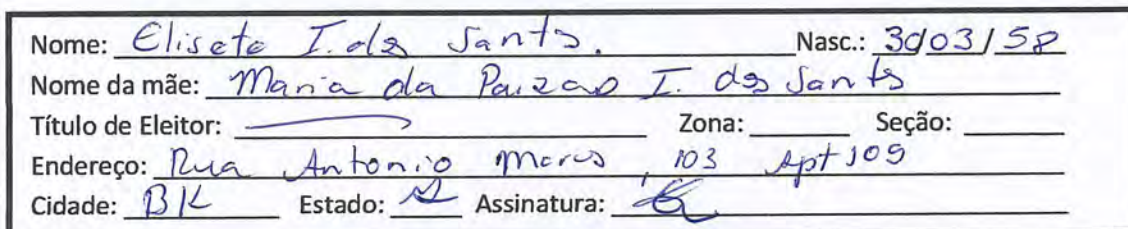 Nome: Elisete I. dos Santos. Nasc.: 30/03/58
Nome da mãe: Maria da Paizao I. dos Santos
Título de Eleitor: Zona: Seção:
Endereço: Rua Antonio , 103 Apt 109
Cidade: Estado: Assinatura: